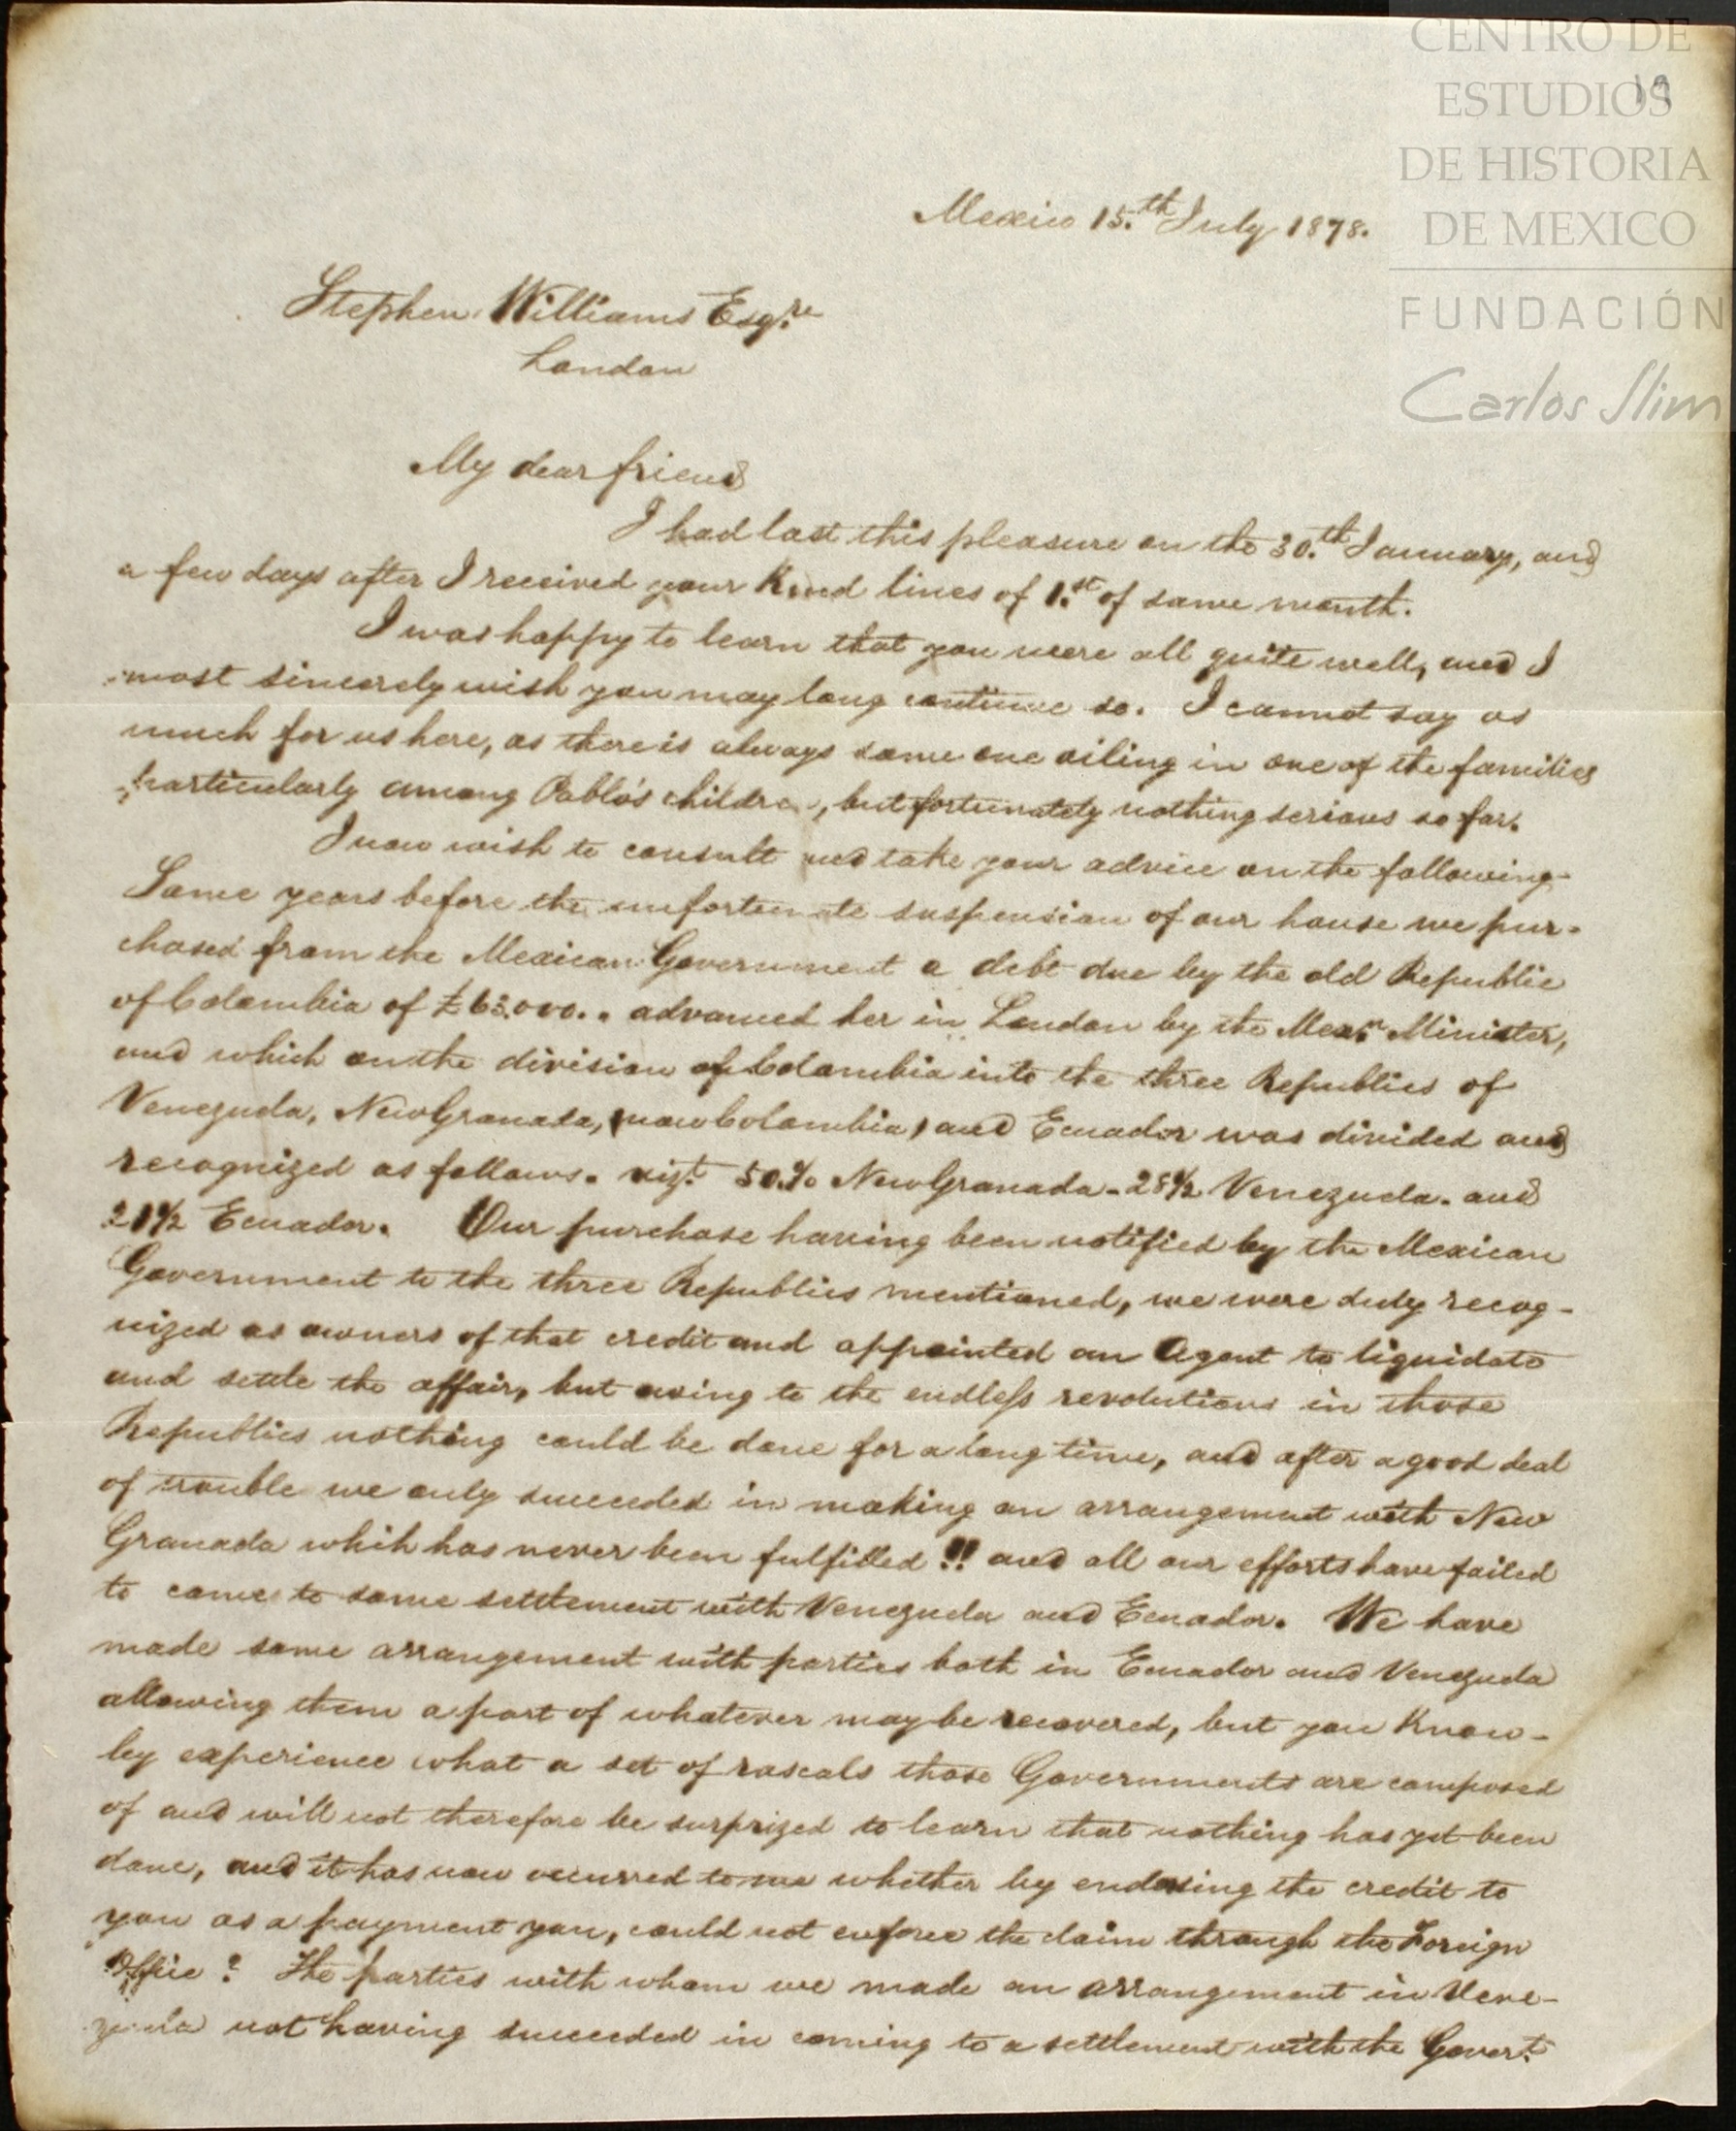 CENTRO DE
ESTUDIOS
DE HISTORIA
DE MEXICO
FUNDACIÓN
Carlos Slim
19
Mexico 15.th July 1878.
Stephen Williams Esqre
London
My dear friend
I had last this pleasure on the 30.th January, and
a few days after I received your kind lines of 1.st of same month.
I was happy to learn that you were all quite well, and I
most sincerely wish you may long continue so. I cannot say as
much for us here, as there is always some one ailing in one of the families
particularly among Pablo's children, but fortunately nothing serious so far.
I now wish to consult and take your advice on the following.
Some years before the unfortunate suspension of our house we pur-
chased from the Mexican Government a debt due by the old Republic
of Colombia of £63.000.. advanced her in London by the Mexn Minister,
and which on the division of Colombia into the three Republics of
Venezuela, New Granada, (now Colombia) and Ecuador was divided and
recognized as follows. vizt. 50.% New Granada - 28½ Venezuela. and
21½ Ecuador. Our purchase having been notified by the Mexican
Government to the three Republics mentioned, we were duly recog-
nized as owners of that credit and appointed an Agent to liquidate
and settle the affair, but owing to the endless revolutions in those
Republics nothing could be done for a long time, and after a good deal
of trouble we only succeeded in making an arrangement with New
Granada whih has never been fulfilled!! and all our efforts have failed
to come to some settlement with Venezuela and Ecuador. We have
made some arrangement with parties both in Ecuador and Venezuela
allowing them a part of whatever may be recovered, but you know-
by experience what a set of rascals those Governments are composed
of and will not therefore be surprized to learn that nothing has yet been
done, and it has now occurred to me whether by endorsing the credit to
you as a payment you, could not enforce the claim through the Foreign
Office? The parties with whom we made an arrangement in Vene-
zuela not having succeeded in coming to a settlement with the Govert.